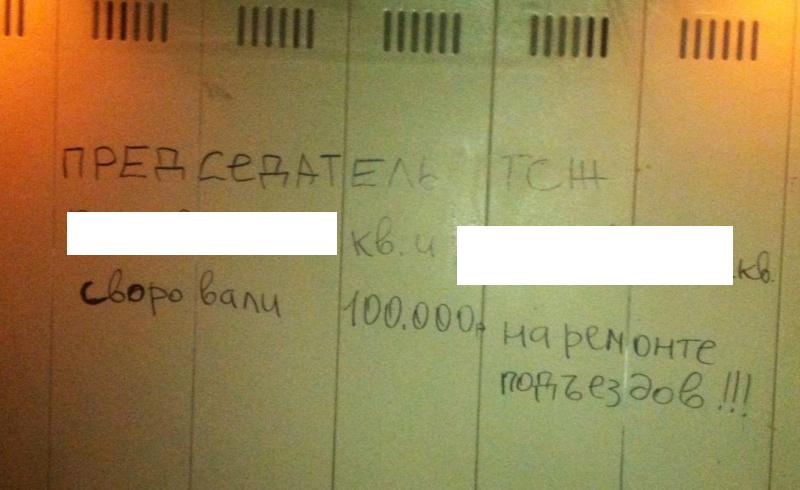 ПРЕДСЕДАТЕЛЬ ТСЖ
кв. и кв.
своровали 100.000р на ремонте
подъездов!!!